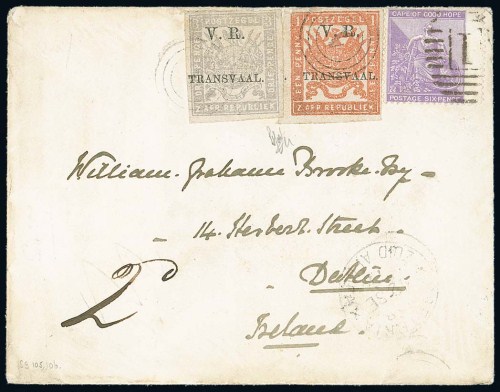 POSTZEGEL 3
V. R.
TRANSVAAL.
Z. AFR. REPUBLIEK
1 POSTZEGEL 1
EEN PENNY
V. R.
TRANSVAAL.
Z. AFR. REPUBLIEK
CAPE OF GOOD HOPE
POSTAGE SIX PENCE
1
William Graham Brooke Esqr
14. Herbert Street
Dublin
Ireland
2D